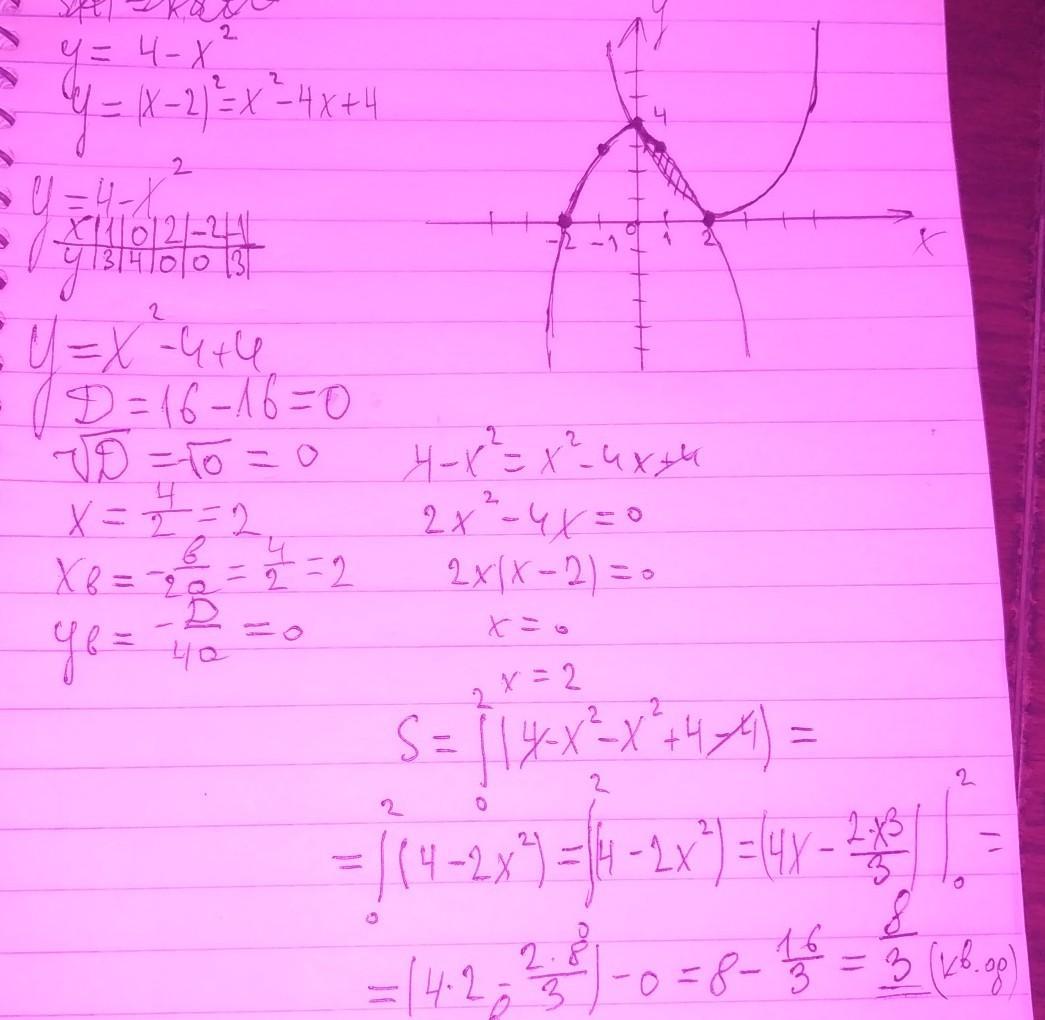 y = 4 - x²
y = (x-2)² = x² - 4x + 4
y = 4 - x²
x | 1 | 0 | 2 | -2 | -1
y | 3 | 4 | 0 | 0 | 3
y = x² - 4 + 4
D = 16 - 16 = 0
√D = √0 = 0
x = 4/2 = 2
xв = -в/2a = 4/2 = 2
yв = -D/4a = 0
y
4
-2 -1 0 1 2
x
4 - x² = x² - 4x + 4
2x² - 4x = 0
2x(x - 2) = 0
x = 0
x = 2
S = ∫₀² (4 - x² - x² + 4 - 4) =
= ∫₀² (4 - 2x²) = ∫₀² (4 - 2x²) = (4x - 2·x³/3) |₀² =
= (4·2 - 2·8/3) - 0 = 8 - 16/3 = 8/3 (кв.ор)